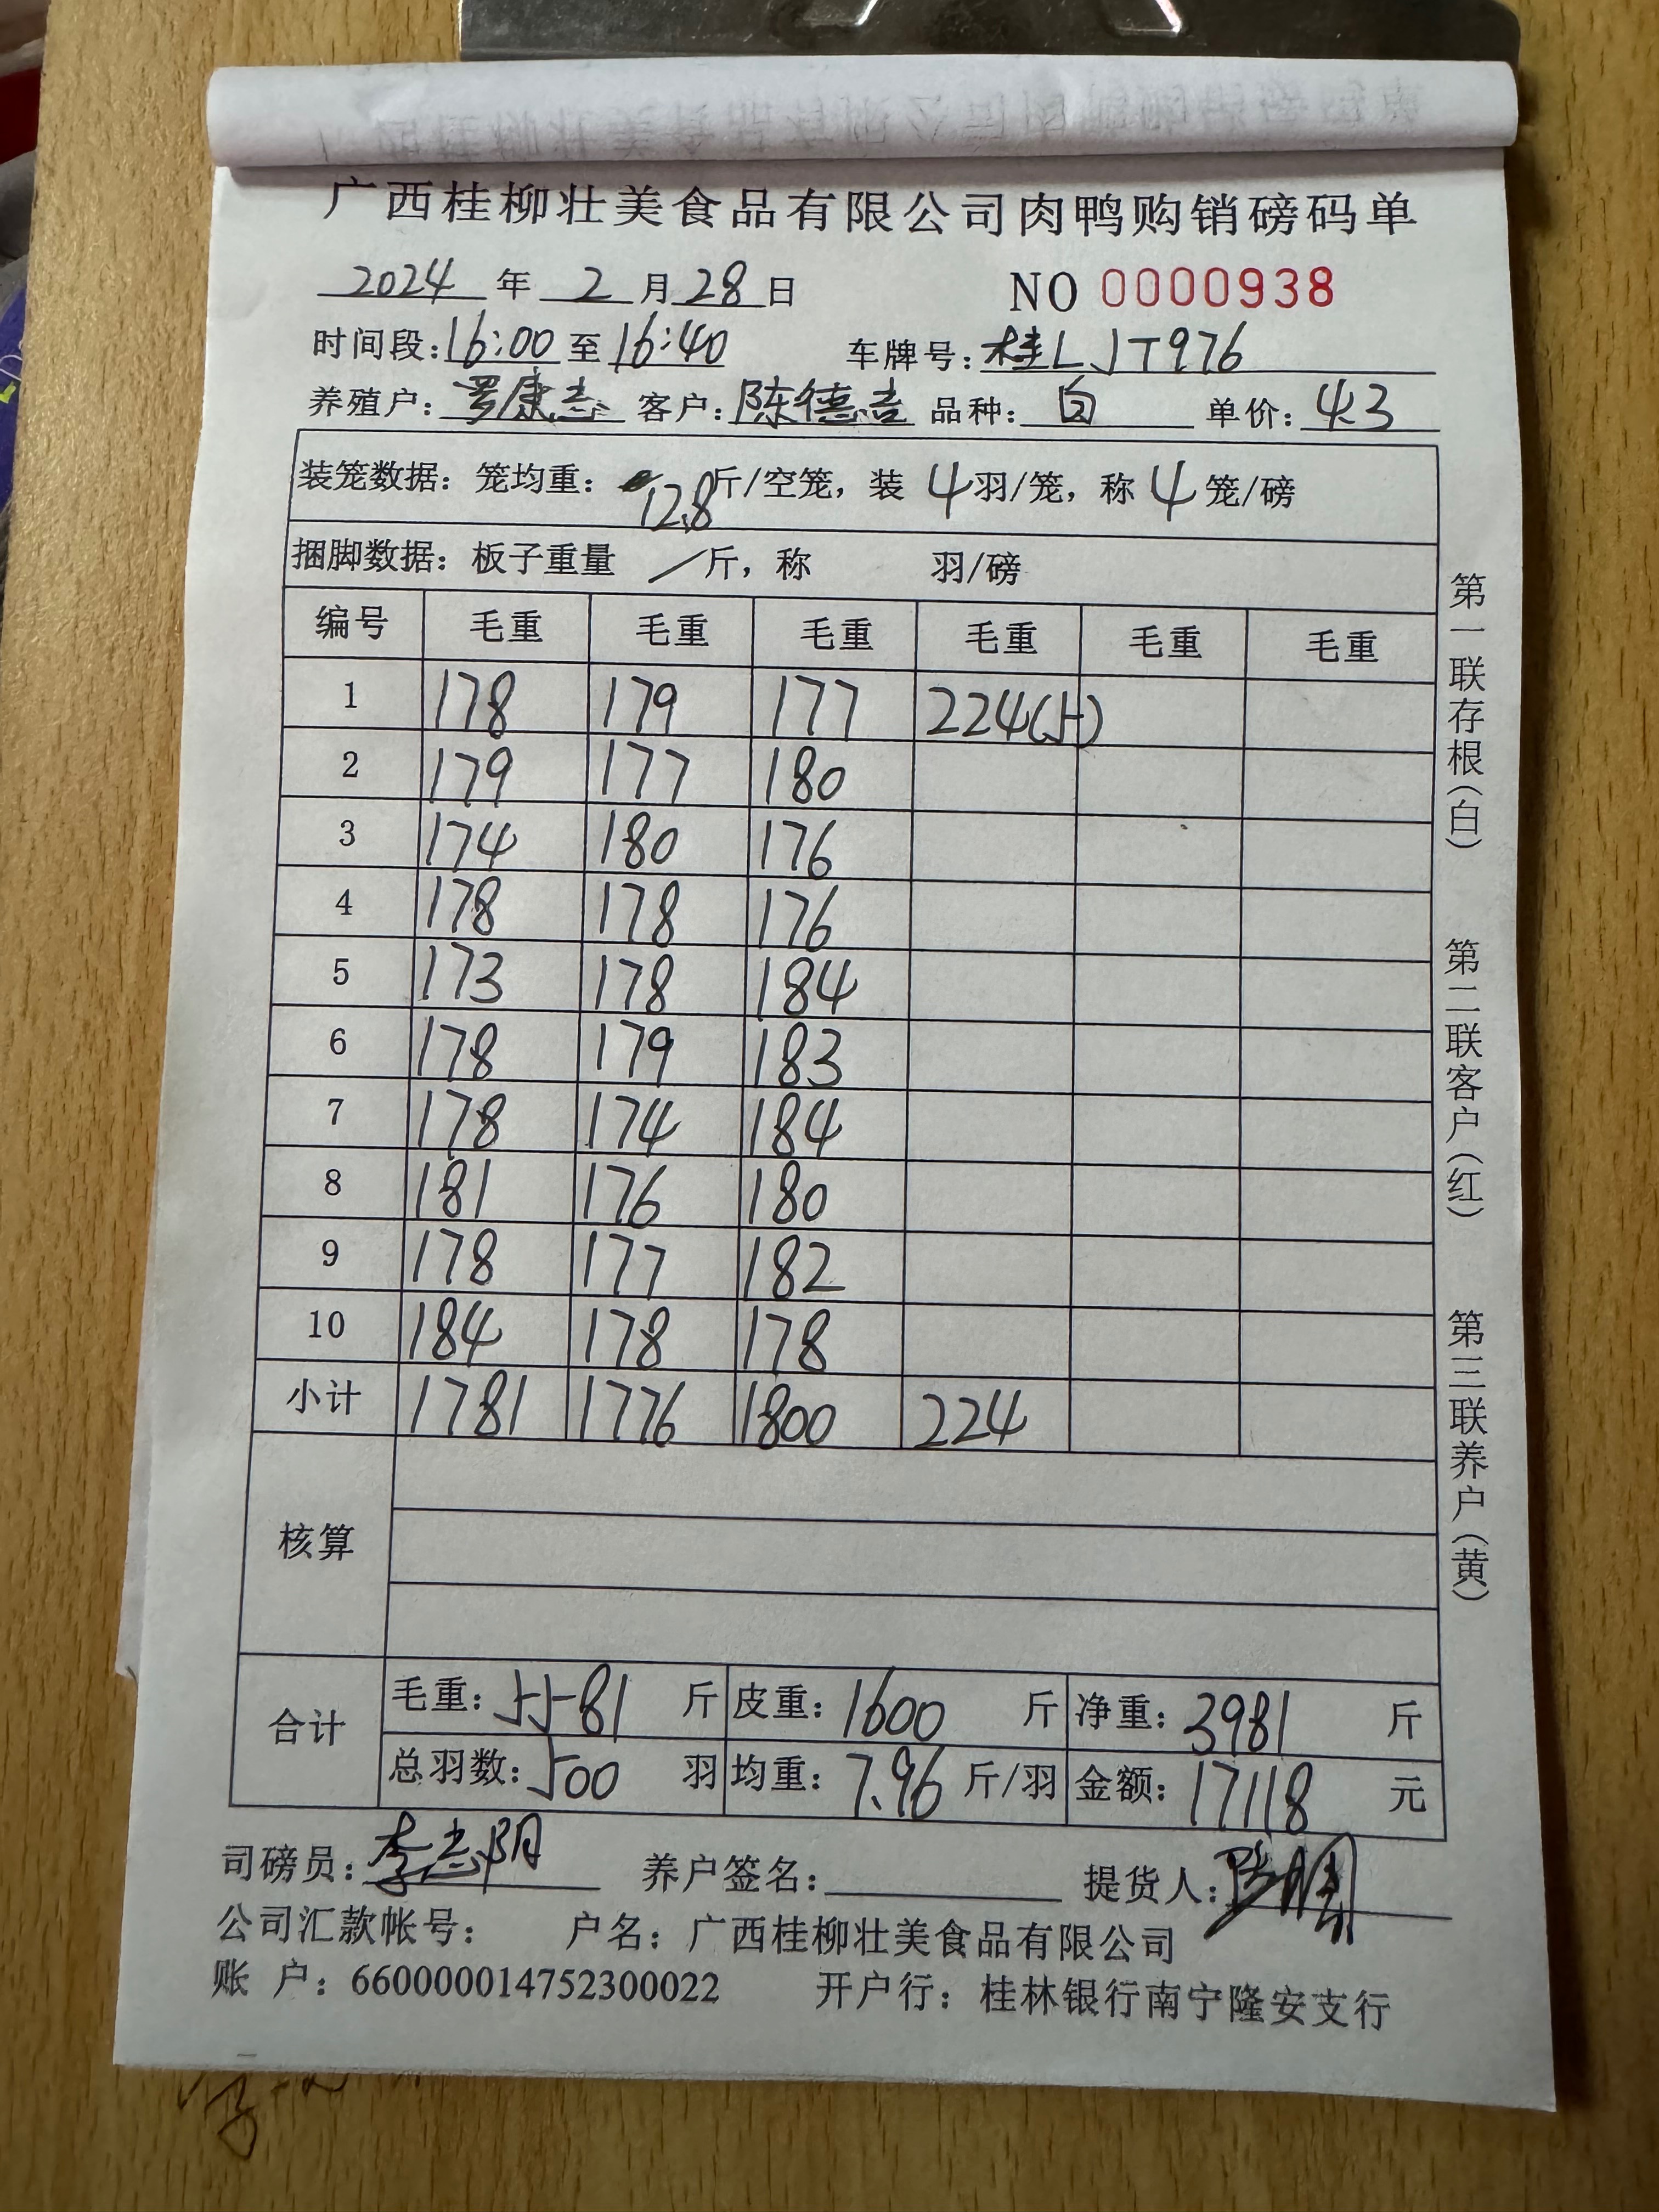 广西桂柳壮美食品有限公司肉鸭购销磅码单
2024 年 2 月 28 日 NO 0000938
时间段:16:00 至 16:40 车牌号:桂L JT976
养殖户:罗康志 客户:陈德吉 品种:白 单价:4.3
装笼数据:笼均重:12.8斤/空笼,装 4羽/笼,称 4 笼/磅
捆脚数据:板子重量 / 斤,称 羽/磅
编号 毛重 毛重 毛重 毛重 毛重 毛重
1 178 179 177 224(5)
2 179 177 180
3 174 180 176
4 178 178 176
5 173 178 184
6 178 179 183
7 178 174 184
8 181 176 180
9 178 177 182
10 184 178 178
小计 1781 1776 1800 224
核算
合计 毛重:5581 斤 皮重:1600 斤 净重:3981 斤
总羽数:500 羽 均重:7.96 斤/羽 金额:17118 元
司磅员:李志阴 养户签名: 提货人:
公司汇款帐号: 户名:广西桂柳壮美食品有限公司
账 户:660000014752300022 开户行:桂林银行南宁隆安支行
第一联存根(白)
第二联客户(红)
第三联养户(黄)